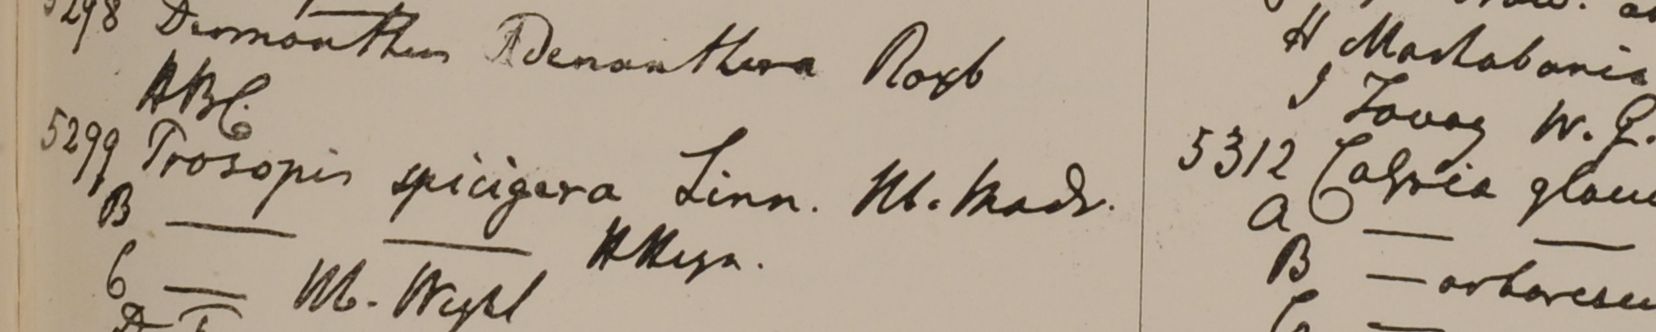 5298 Desmanthus Adenanthera Roxb
HBC.
5299 Prosopis spicigera Linn. Hb. Madr.
B — — H Heyn.
C — Hb. Wight
D
H Martabania
I Tavoy W. G.
5312 Cassia glau
a — —
B — arboresce
C —